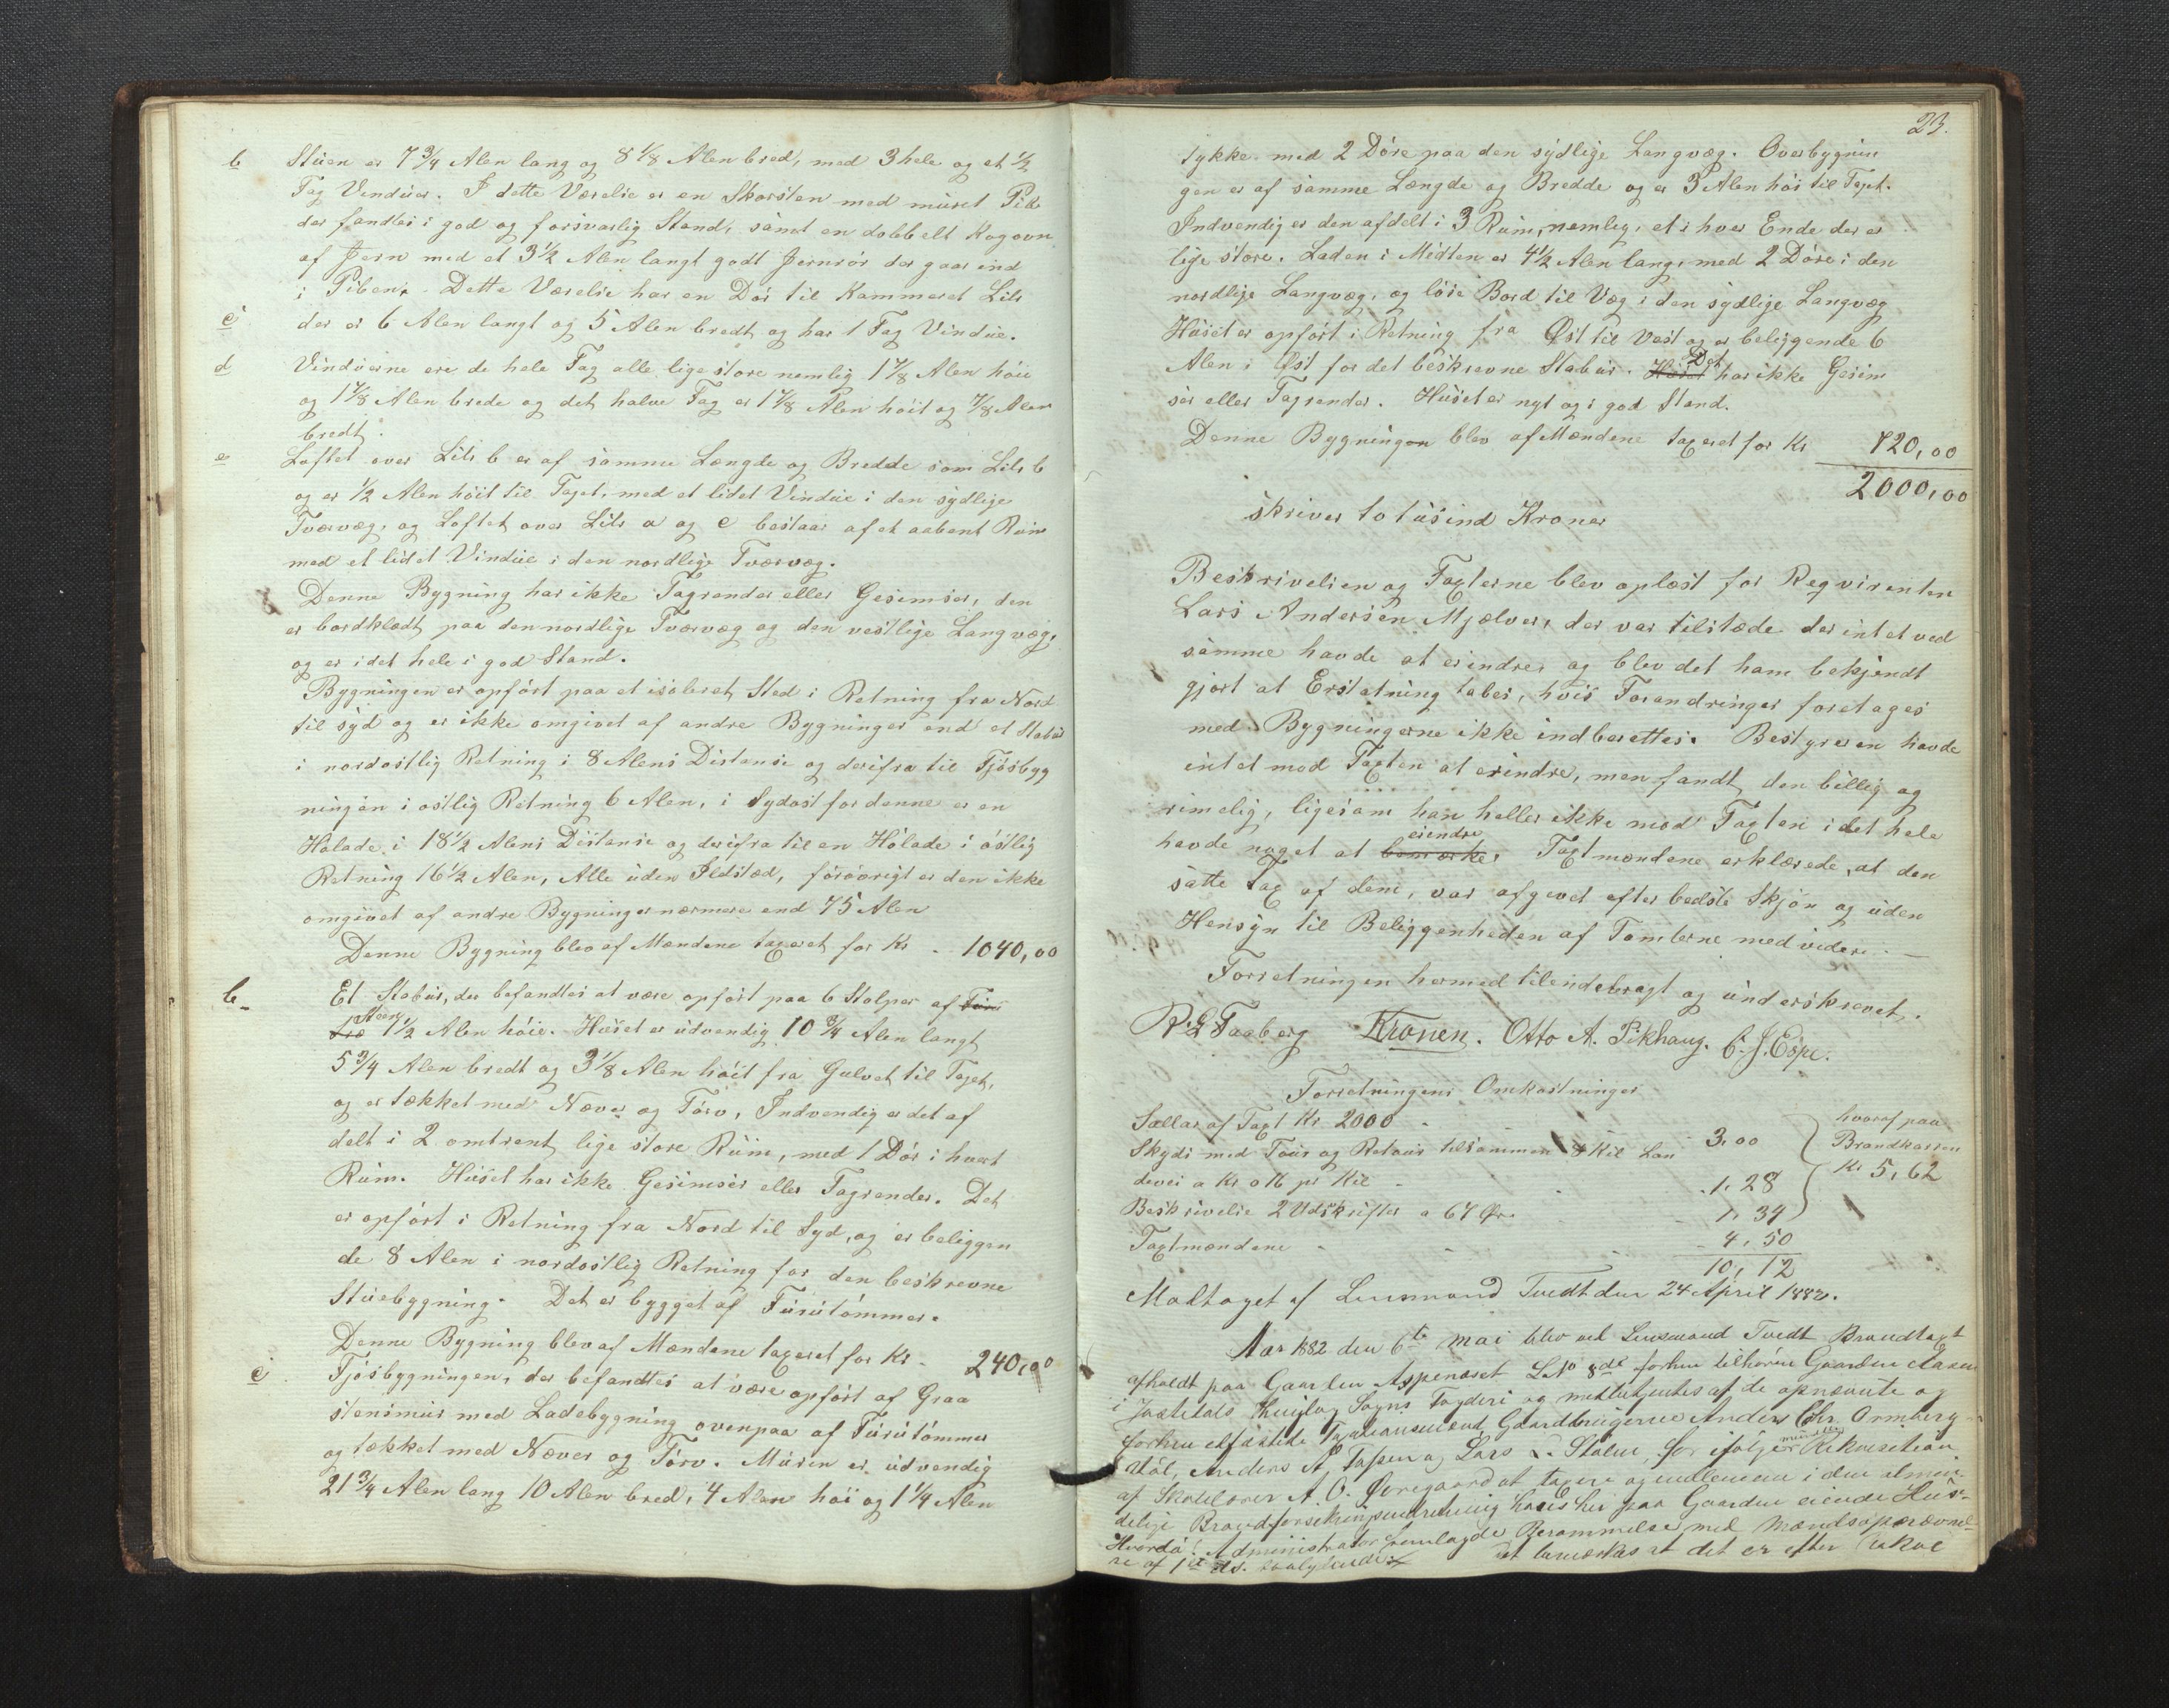 b Stuen er 7 3/4 Alen lang og 8 1/8 Alen bred, med 3 hele og et 1/2
Fag Vinduer. I dette Værelse er en Skorsten med muret Pibe
der fandtes i god og forsvarlig Stand, samt en dobbelt Kogovn
af Jern med et 3 1/2 Alen langt godt Jernrör der gaar ind
i Piben. Dette Værelse har en Dör til Kammeret Litr
c der er 6 Alen langt og 5 Alen bredt og har 1 Fag Vindue.
d Vinduerne ere de hele Fag alle lige store nemlig 1 7/8 Alen höie
og 1 7/8 Alen brede og det halve Fag er 1 7/8 Alen höit og 7/8 Alen
bredt.
e Loftet over Litr b er af samme Længde og Bredde som Litr b
og er 1/2 Alen höit til Taget, med et lidet Vindue i den sydlige
Tværvæg, og Loftet over Litr a og c bestaar af et aabent Rum
med et lidet Vindue i den nordlige Tværvæg.
Denne Bygning har ikke Tagrender eller Gesimser, den
er bordklædt paa den nordlige Tværvæg og den vestlige Langvæg,
og er i det hele i god Stand.
Bygningen er opfört paa et isoleret Sted i Retning fra Nord
til syd og er ikke omgivet af andre Bygninger end et Stabur
i nordostlig Retning i 8 Alens Distanse og derifra til Fjösbyg
ningen i ostlig Retning 6 Alen, i Sydost for denne er en
Hölade i 18 1/2 Alens Distanse og derifra til en Hölade i östlig
Retning 16 1/2 Alen, Alle uden Ildsted, forövrigt er den ikke
omgivet af andre Bygninger nærmere end 75 Alen
Denne Bygning blev af Mændene taxeret for Kr - 1040,00
b. Et Stabur, der befandtes at være opfört paa 6 Stolper af
Steen 1 1/2 Alen höie. Huset er udvendig 10 3/4 Alen langt
5 3/4 Alen bredt og 3 1/8 Alen höit fra Gulvet til Taget,
og er tækket med Næver og Törv, Indvendig er det af
delt i 2 omtrent lige store Rum, med 1 Dör i hvert
Rum. Huset har ikke Gesimser eller Tagrender. Det
er opfört i Retning fra Nord til Syd, og er beliggen
de 8 Alen i nordostlig Retning for den beskrevne
Stuebygning. Det er bygget af Furutömmer.
Denne Bygning blev af Mændene taxeret for Kr - 240,00
c Fjösbygningen, der befandtes at være opfört af Graa
stensmur med Ladebygning ovenpaa af Furutömmer
og tækket med Næver og Törv. Muren er udvendig
21 3/4 Alen lang 10 Alen bred, 4 Alen höi og 1 1/4 Alen
23.
tykke med 2 Döre paa den sydlige Langvæg. Overbygnin
gen er af samme Længde og Bredde og er 3 Alen höi til Taget.
Indvendig er den afdelt i 3 Rum, nemlig, et i hver Ende der er
lige store. Laden i Midten er 4 1/2 Alen lang, med 2 Döre i den
nordlige Langvæg, og löse Bord til Væg i den sydlige Langvæg
Huset er opfört i Retning fra Øst til Vest og er beliggende 6
Alen i Øst for det beskrevne Stabur. Huset Det har ikke Gesim
ser eller Tagrender. Huset er nyt og i god Stand.
Denne Bygningen blev af Mændene taxeret for Kr 720,00
2000,00
skriver to tusind Kroner
Beskrivelsen og Taxterne blev oplæst for Reqvirenten
Lars Andersen Mjælver, der var tilstæde der intet ved
samme havde at erindre, og blev det ham bekjendt
gjort at Erstatning tabes, hvis Forandringer foretages
med Bygningerne ikke indberettes. Bestyreren havde
intet mod Taxten at erindre, men fandt den billig og
rimelig, ligesom han heller ikke mod Taxten i det hele
havde noget at bemærke erindre Taxtmændene erklærede, at den
satte Tax af dem, var afgivet efter bedste Skjön og uden
Hensyn til Beliggenheden af Tomterne med videre. —
Forretningen hermed tilendebragt og underskrevet.
R. L Faaberg Kronen. Otto A. Pikhaug. C. J. Espe.
Forretningens Omkostninger
Sallar af Taxt Kr 2000 - 3,00
Skyds med Tour og Retour tilsammen 8 Kil Lan
devei a Kr 0 16 pr Kil - 1,28
Beskrivelse 2 Udskrifter a 67 Øre 1,34
hvoraf paa
Brandkassen
Kr 5,62
Taxtmændene - 4,50
10,12
Modtaget af Lensmand Tvedt den 24 April 1882.
Aar 1882 den 6te Mai blev ved Lensmand Tvedt Brandtaxt
afholdt paa Gaarden Aspenæset L No 8de
i Thinglag Sogns Fogderi og af de opnævnte og
Gaardbrugerne Anders Chr. Ormberg
Anders A. og Lars Stölen, for ifölge mundtlig Rekvisition
af Skolelærer A. O. Øvregaard at taxere og indlemme i den almin
delige Brandforsikringsindretning hans her paa Gaarden eiende Huse.
Administrator fremlagde Berammelse med Mandsopnævnel
se af 1ste ds. at bemærkes at det er efter Lokal